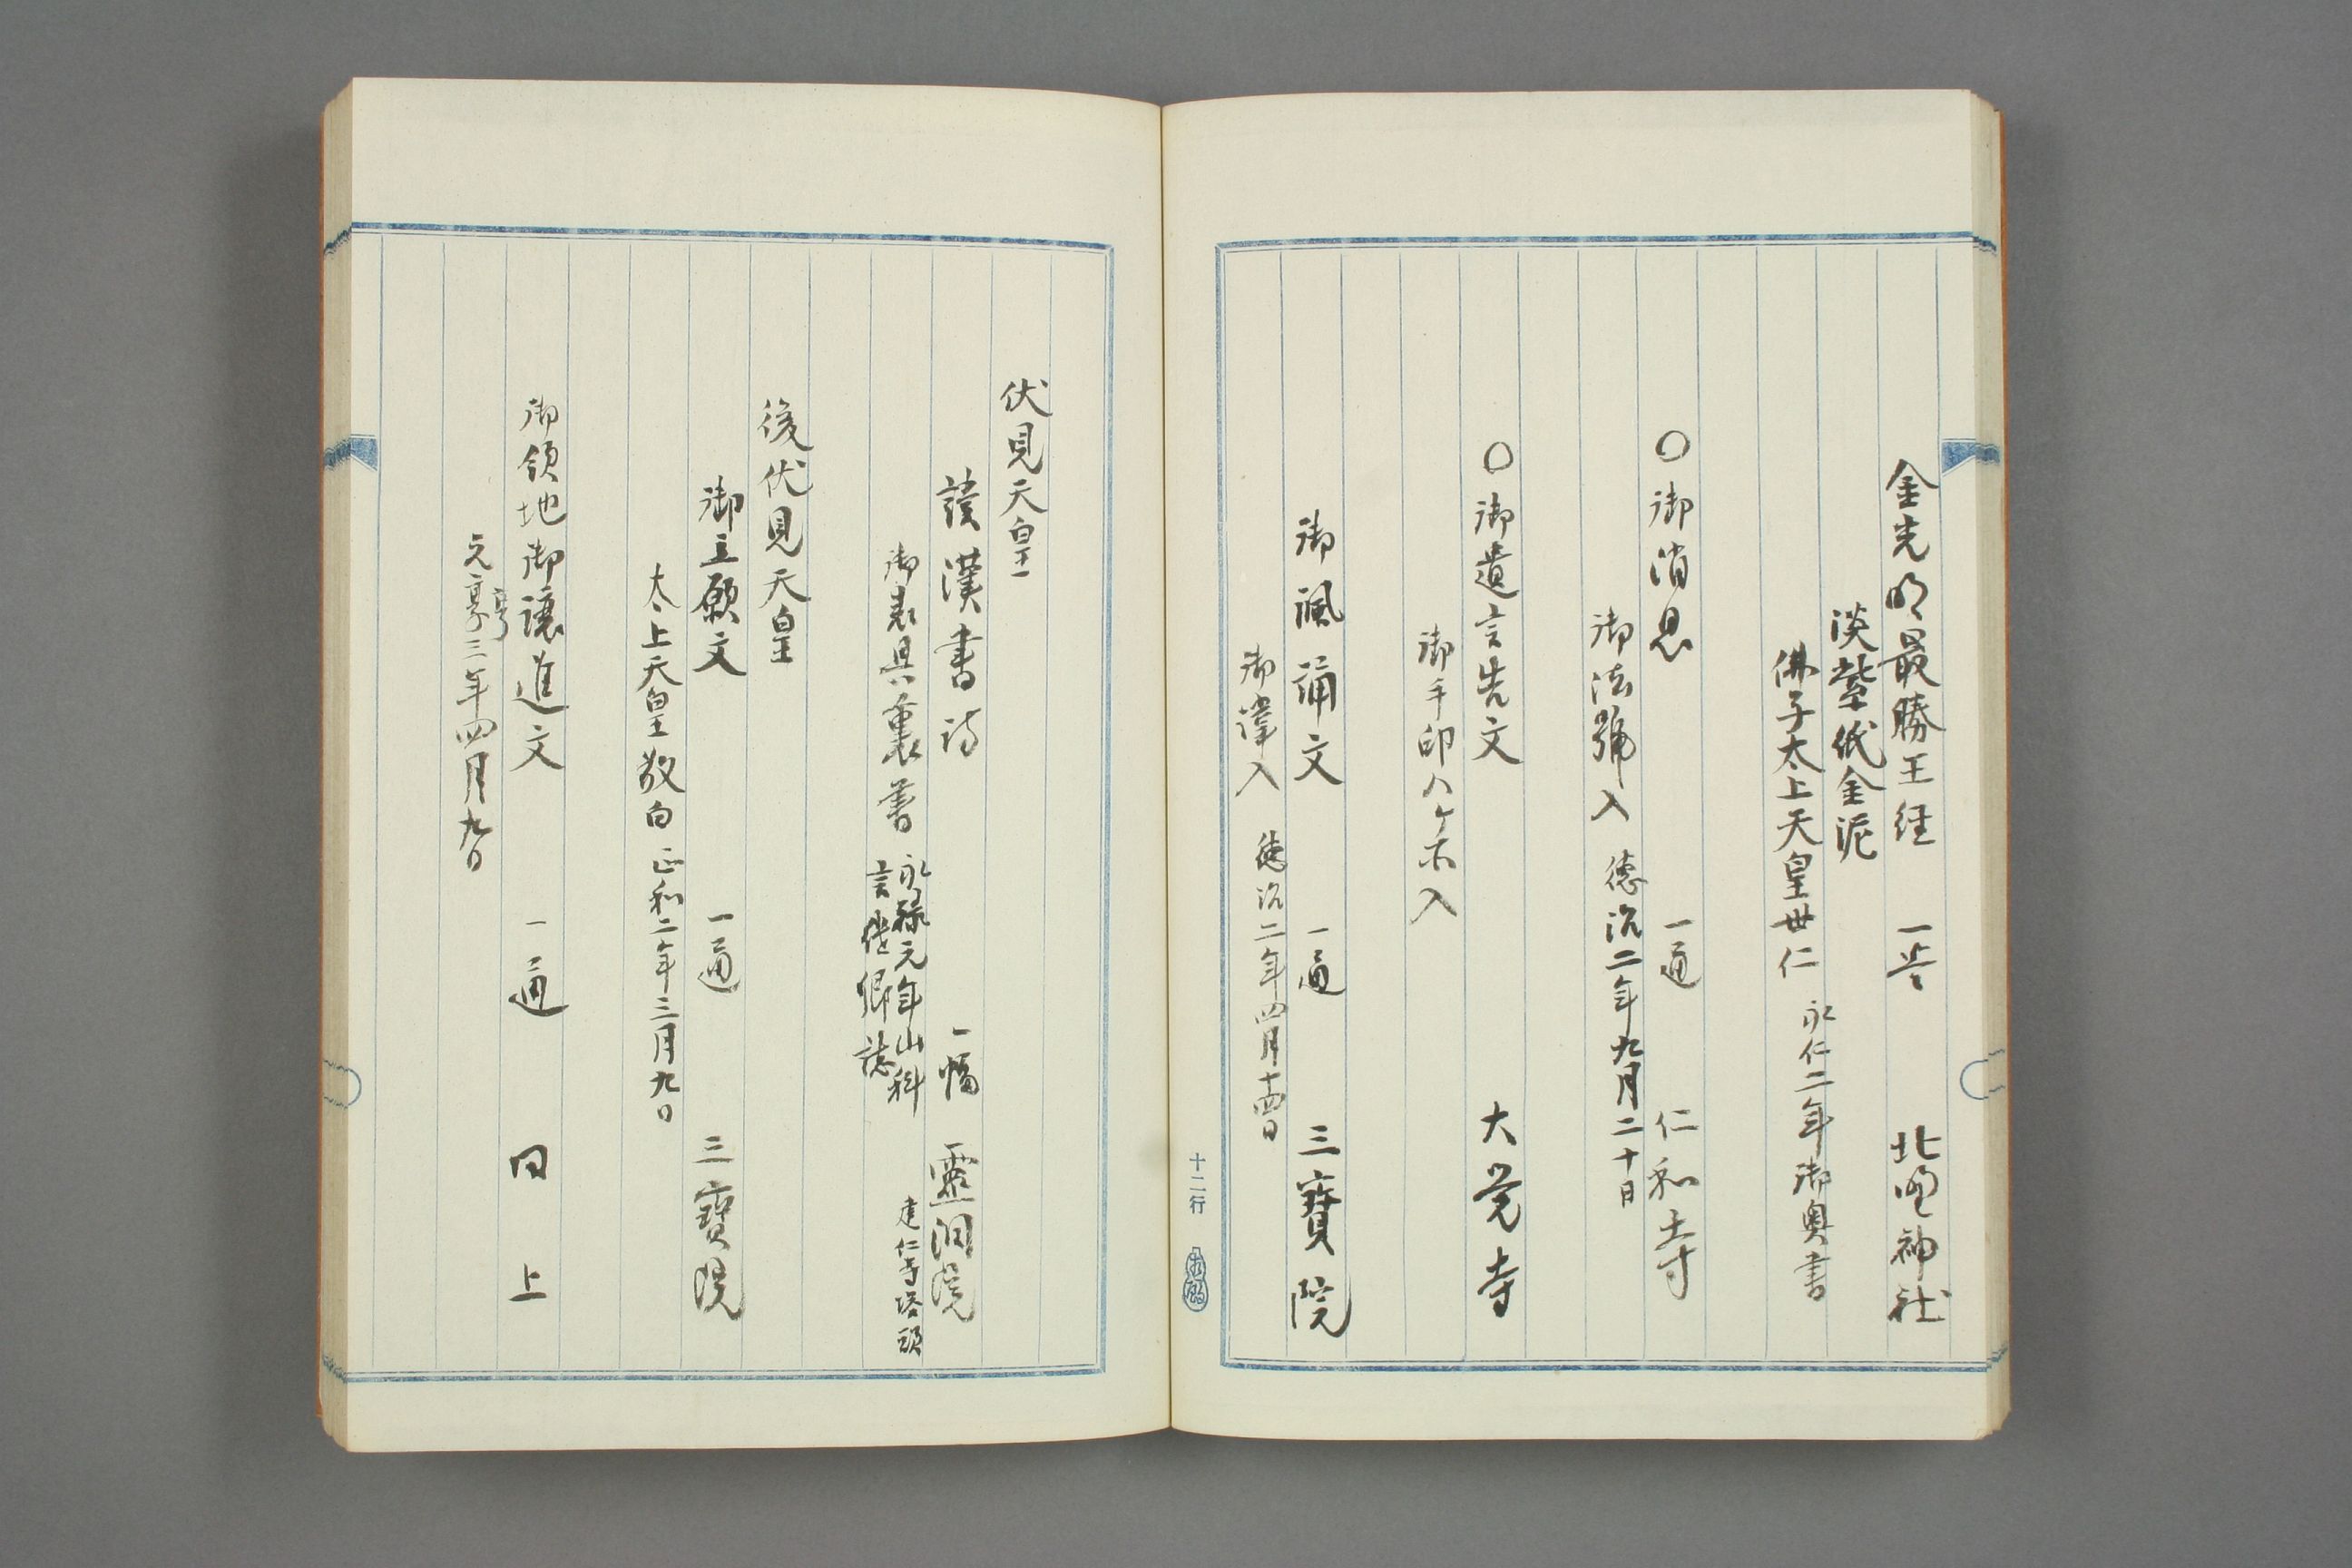 金光明最勝王経 一巻 北野神社
淡紫紙金泥
佛子太上天皇世仁 永仁二年御奥書
〇御消息 一通 仁和寺
御法號入 德治二年九月二十日
〇御遺言告文 大覚寺
御手印八ヶ所入
御諷誦文 一通 三寶院
御諱入 德治二年四月十四日
十二行
伏見天皇
讀漢書詩 一幅 靈洞院
御表具裏書 永禄元年山科
言継卿誌
建仁寺塔頭
後伏見天皇
御立願文 一通 三寶院
太上天皇敬白 正和二年三月九日
御領地御譲進文 一通 同上
元享三年四月九日
亨